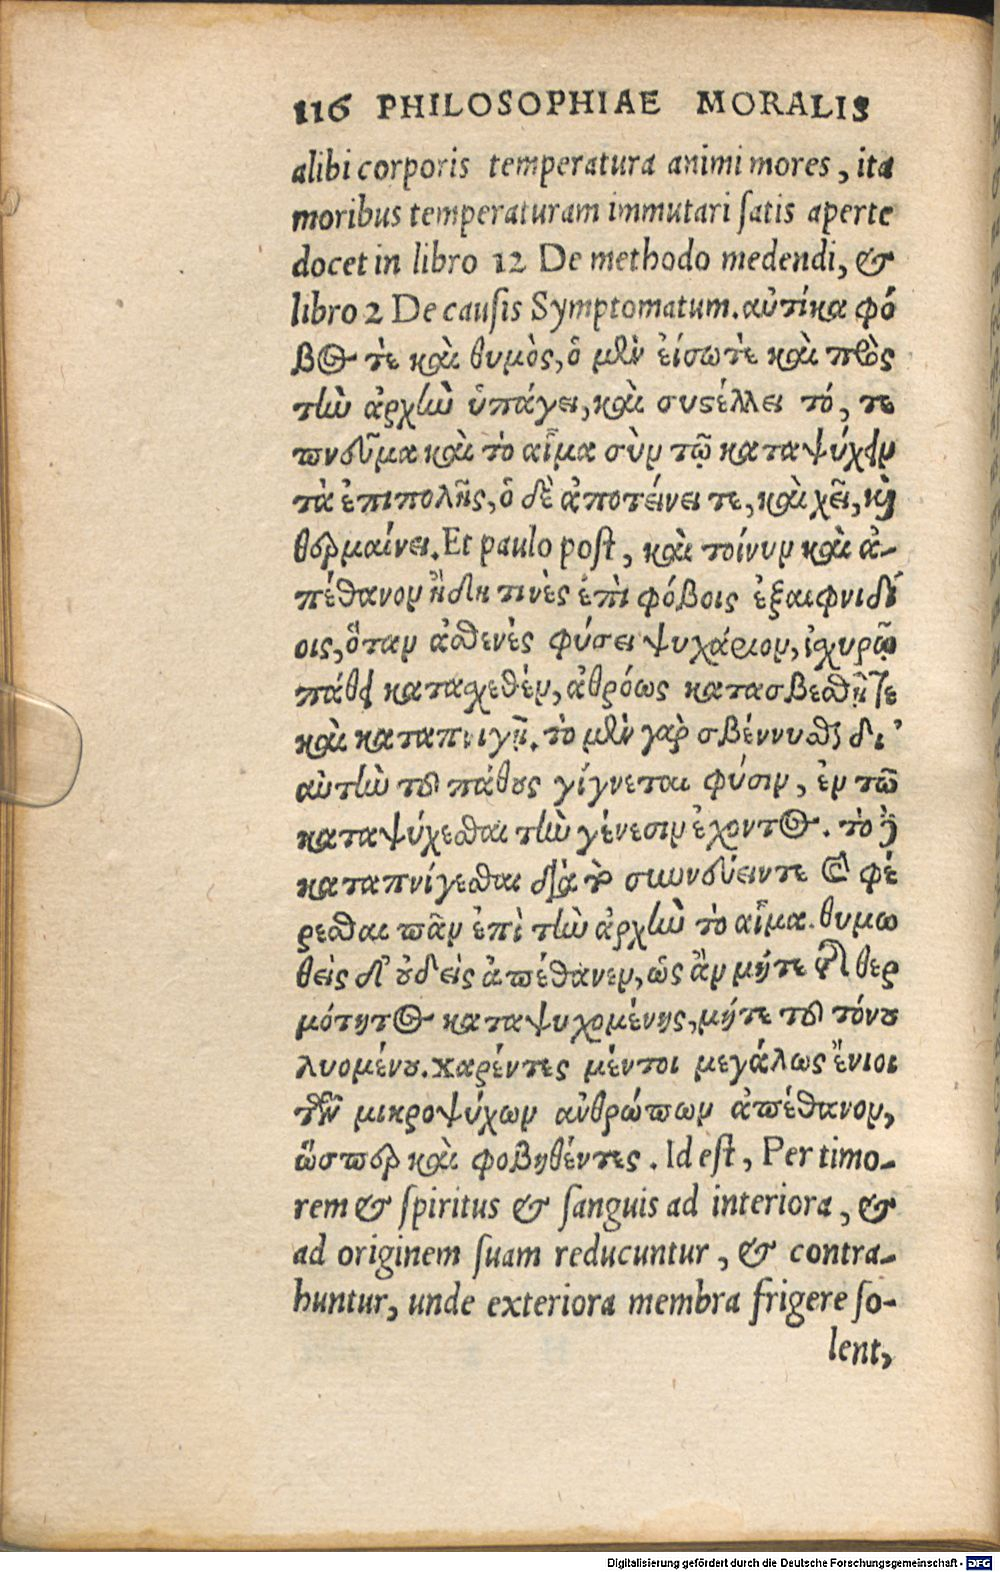 116 PHILOSOPHIAE MORALIS
alibi corporis temperatura animi mores, ita
moribus temperaturam immutari ſatis aperte
docet in libro 12 De methodo medendi, &
libro 2 De cauſis Symptomatum. αὐτίκα φό
βος τὲ καὶ θυμὸς, ὁ μὲν εἴσωτὲ καὶ πρὸς
τὴν ἀρχὴν ὑπάγει, καὶ συστέλλει τό, τε
πνεῦμα καὶ τὸ αἷμα σὺν τῷ καταψύχειν
τὰ ἐπιπολῆς, ὁ δὲ ἀποτείνει τε, καὶ χεῖ, καὶ
θερμαίνει. Et paulo poſt, καὶ τοίνυν καὶ ἀ-
πέθανον ἤδη τινὲς ἐπὶ φόβοις ἐξαιφνιδί
οις, ὅταν ἀσθενὲς φύσει ψυχάριον, ἰσχυρῷ
πάθει κατασχεθὲν, ἀθρόως κατασβεσθῇ τε
καὶ καταπνιγῇ. τὸ μὲν γὰρ σβέννυσθαι δι’
αὐτὴν τοῦ πάθους γίγνεται φύσιν, ἐν τῷ
καταψύχεσθαι τὴν γένεσιν ἔχοντος. τὸ δὲ
καταπνίγεσθαι διὰ τὸ συννεύειν τε καὶ φέ
ρεσθαι πᾶν ἐπὶ τὴν ἀρχὴν τὸ αἷμα. θυμω
θεὶς δ’ οὐδεὶς ἀπέθανεν, ὡς ἂν μήτε τῆς θερ
μότητος καταψυχομένης, μήτε τοῦ τόνου
λυομένου. χαρέντες μέντοι μεγάλως ἔνιοι
τῶν μικροψύχων ἀνθρώπων ἀπέθανον,
ὥσπερ καὶ φοβηθέντες. Id eſt, Per timo-
rem & ſpiritus & ſanguis ad interiora, &
ad originem ſuam reducuntur, & contra-
huntur, unde exteriora membra frigere ſo-
lent,
Digitalisierung gefördert durch die Deutsche Forschungsgemeinschaft - DFG